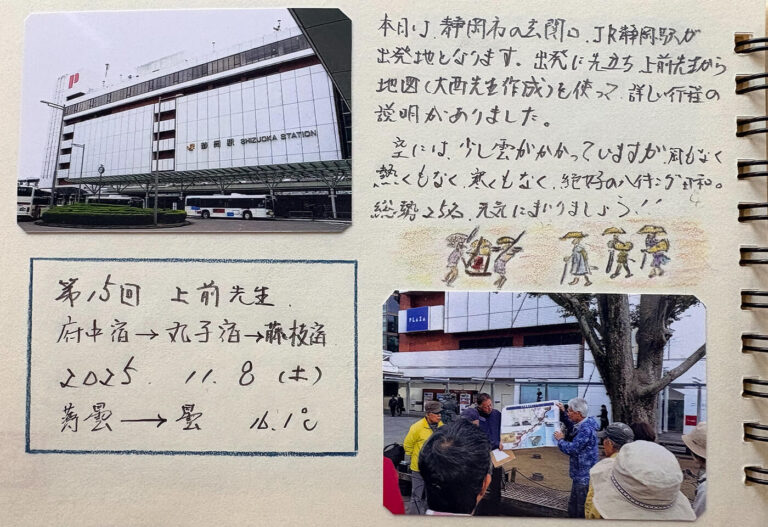 P
静岡駅 SHIZUOKA STATION
本日は、静岡市の玄関口、JR静岡駅が
出発地となります。出発に先立ち上前先生から
地図(大西先生作成)を使って、詳しい行程の
説明がありました。
空には、少し雲がかかっていますが、風もなく
熱くもなく、寒くもなく、絶好のハイキング日和。
総勢25名、元気にまいりましょう!!
第15回 上前先生.
府中宿→丸子宿→藤枝宿
2025. 11. 8 (土)
薄曇→曇 16.1℃